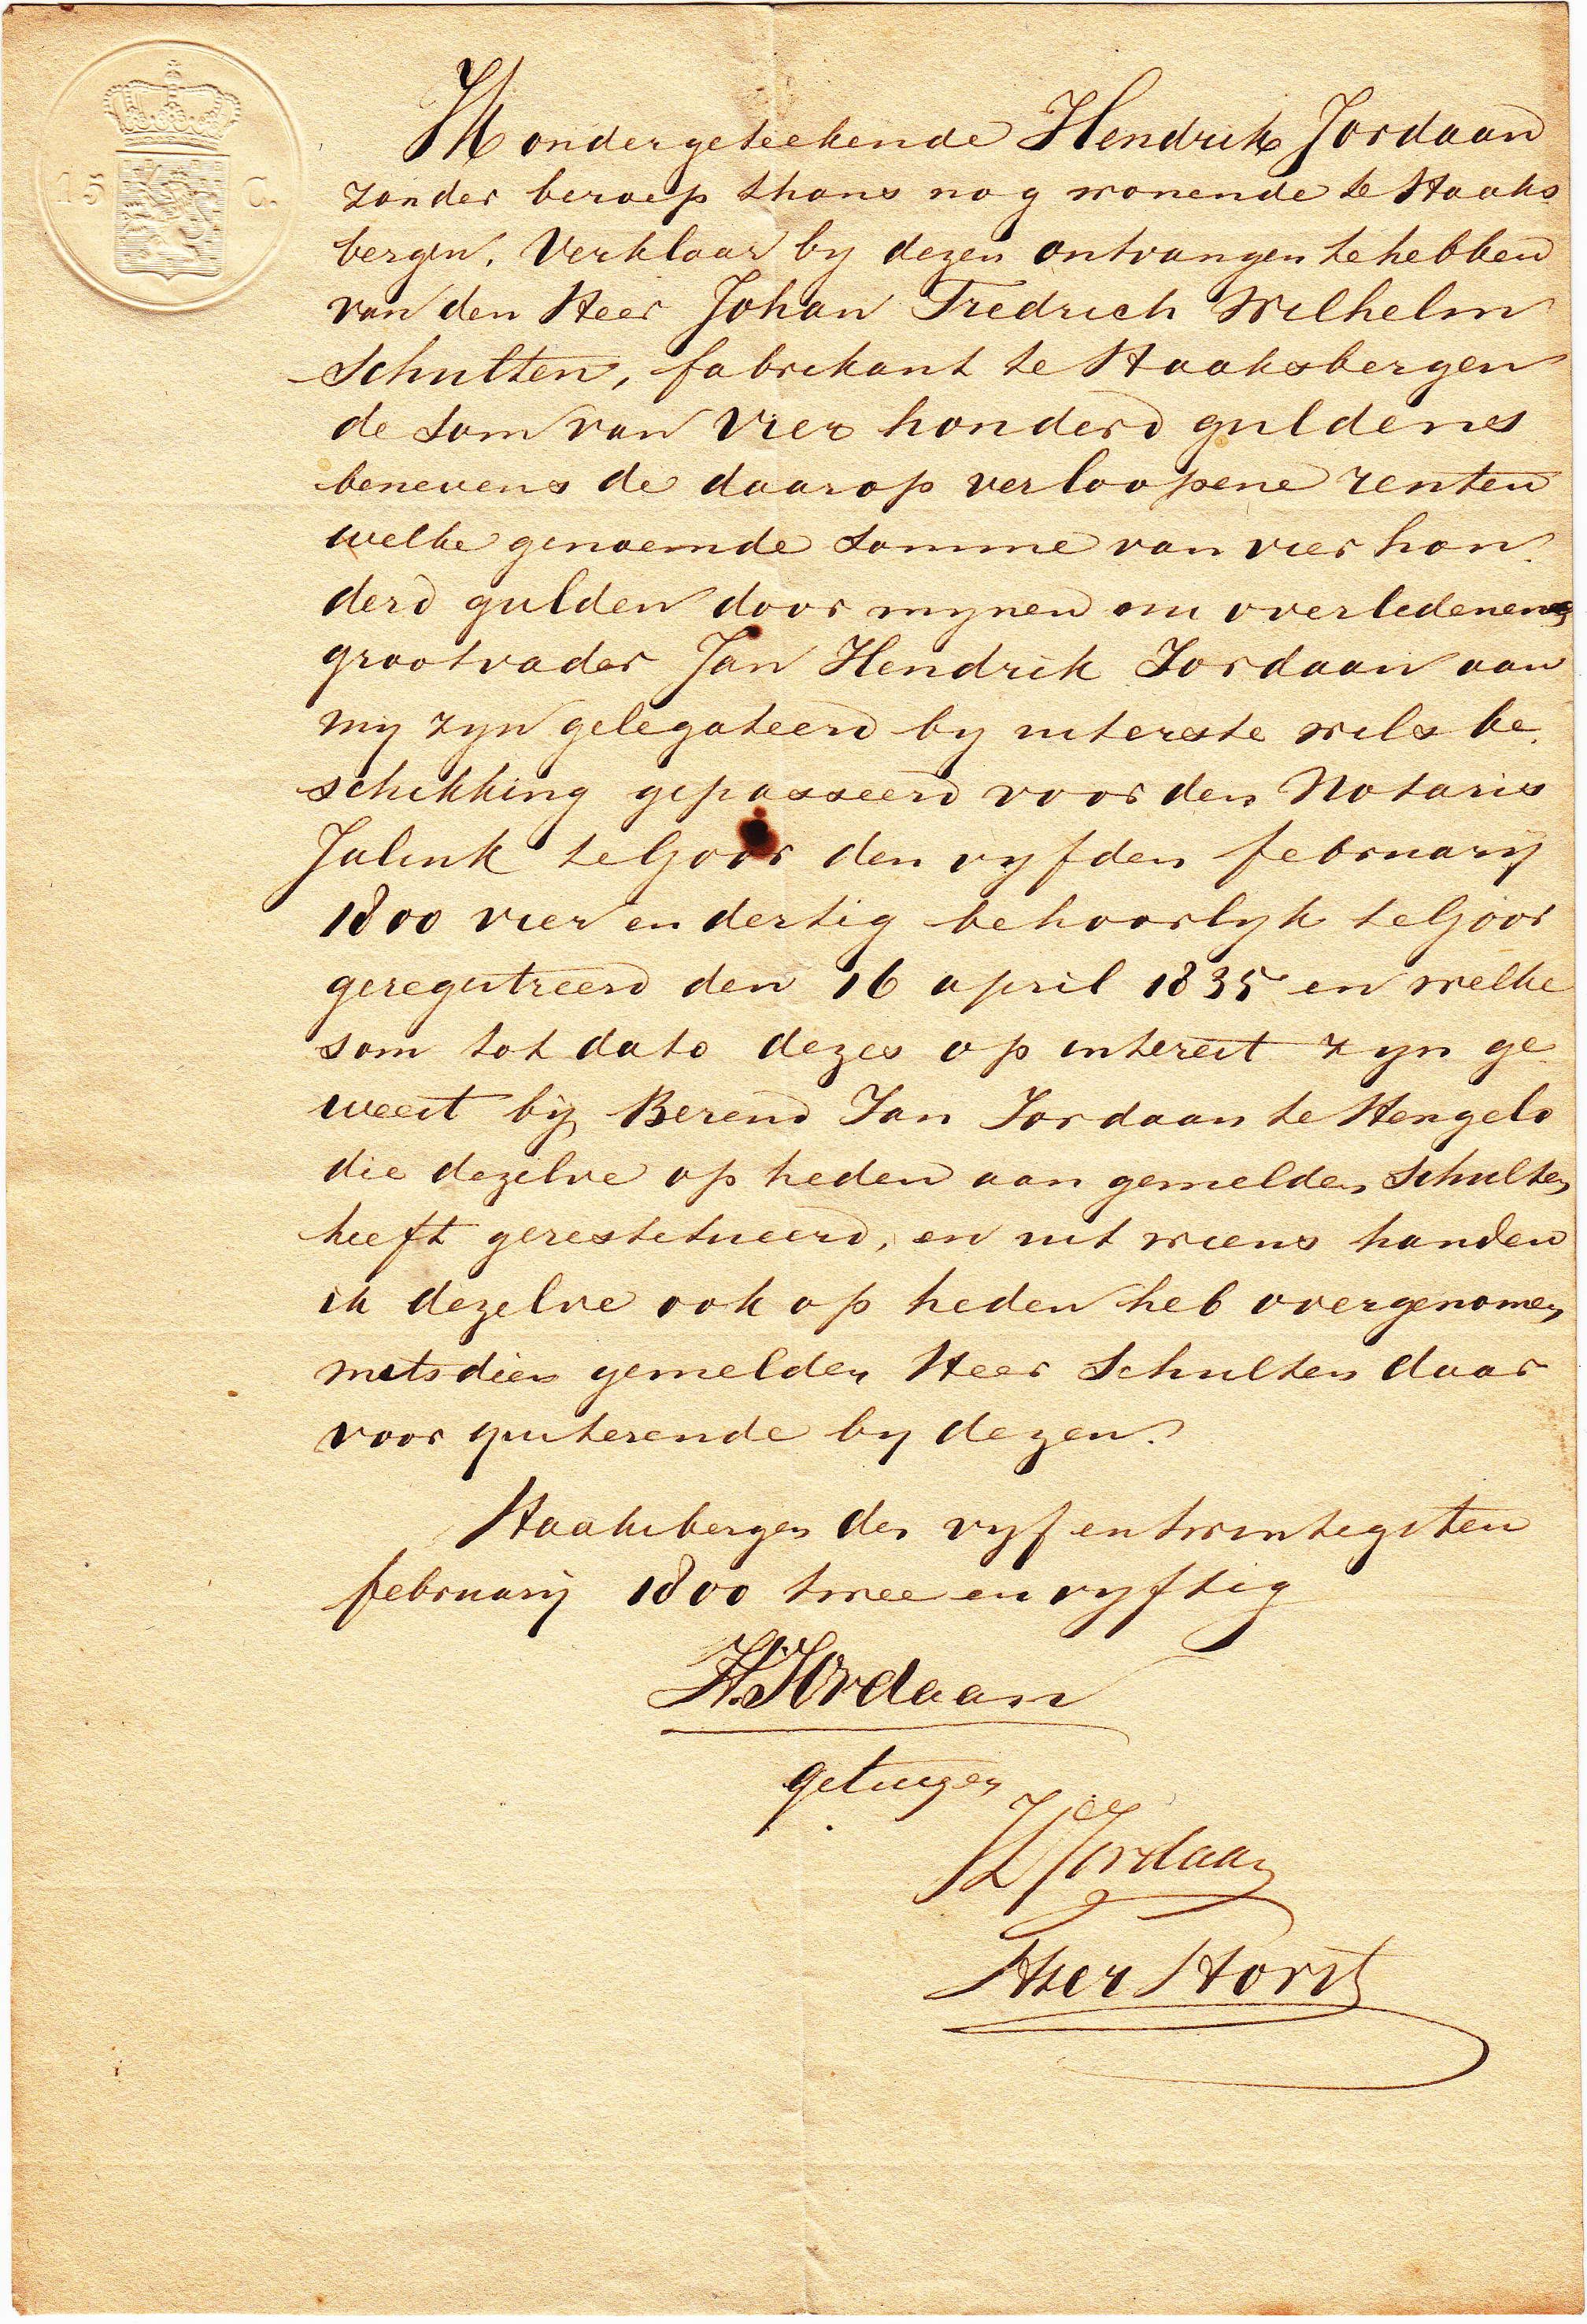 15 C.
Ik ondergeteekende Hendrik Jordaan
zonder beroep thans nog wonende te Haaks
bergen. Verklaar by dezen ontvangen te hebben
van den Heer Johan Fredrich Wilhelm
Schulten, fabrikant te Haaksbergen
de som van Vier honderd guldens
benevens de daarop verloopene renten
welke genoemde somme van vier hon
derd gulden door mynen nu overledenen
grootvader Jan Hendrik Jordaan aan
my zyn gelegateerd by uiterste wils be
schikking gepasseerd voor den Notaris
Jalink te Goor den vyfden february
1800 vier en dertig behoorlyk te Goor
geregistreerd den 16 april 1835 en welke
som tot dato dezes op interest zyn ge
weest bij Berend Jan Jordaan te Hengelo
die dezelve op heden aan gemelden Schulten
heeft gerestitueerd, en uit wiens handen
ik dezelve ook op heden heb overgenomen
mits dien gemelden Heer Schulten daar
voor quiterende by dezen.
Haaksbergen den vyf en twintigsten
februarij 1800 twee en vyftig
H. Jordaan
getuigen
Jordaan
ter Horst